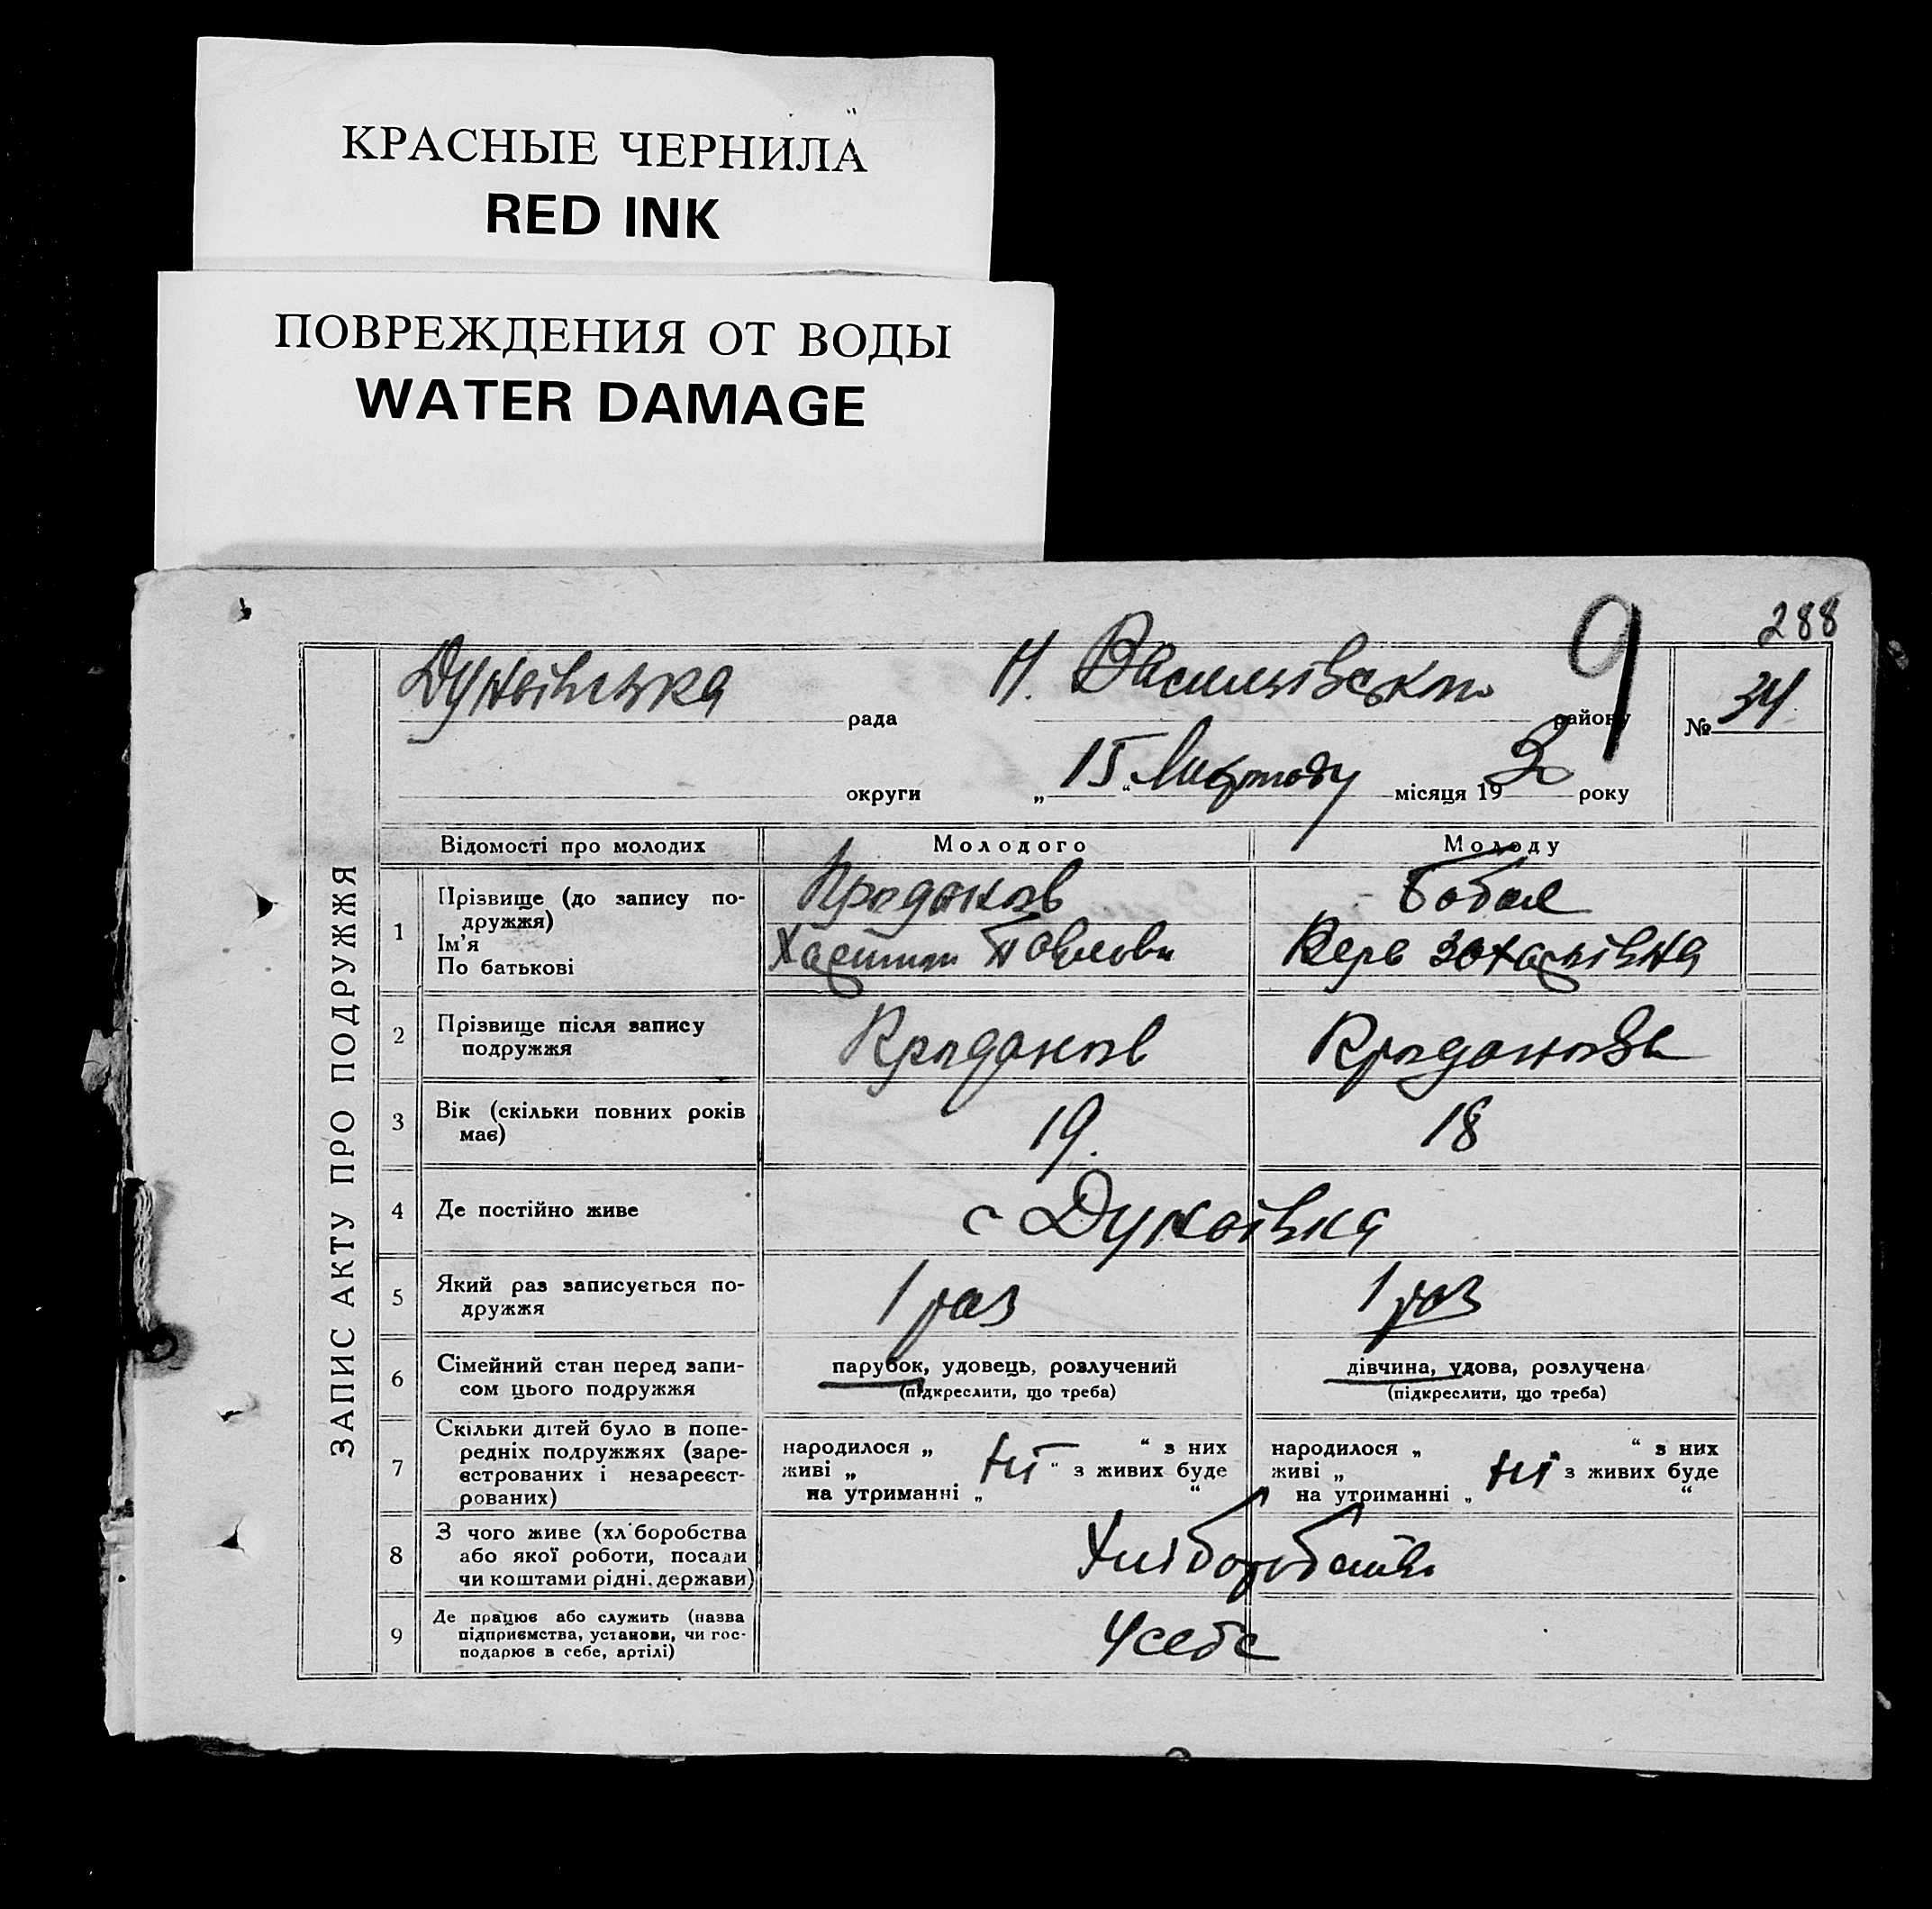 КРАСНЫЕ ЧЕРНИЛА
RED INK
ПОВРЕЖДЕНИЯ ОТ ВОДЫ
WATER DAMAGE
288
9
ЗАПИС АКТУ ПРО ПОДРУЖЖЯ
рада Н. району № 34
округи „15“ місяця 193 року
Відомості про молодих Молодого Молоду
1 Прізвище (до запису по-
дружжя)
Ім'я
По батькові
2 Прізвище після запису
подружжя
3 Вік (скільки повних років
має) 19. 18
4 Де постійно живе с
5 Який раз записується по-
дружжя 1 раз 1 раз
6 Сімейний стан перед запи-
сом цього подружжя парубок, удовець, розлучений дівчина, удова, розлучена
(підкреслити, що треба) (підкреслити, що треба)
7 Скільки дітей було в попе-
редніх подружжях (заре-
єстрованих і незареєст-
рованих)
народилося „ “ з них народилося „ “ з них
живі „ ні “ з живих буде живі „ ні з живих буде
на утриманні „ “ на утриманні „ “
8 З чого живе (хл боробства
або якої роботи, посади
чи коштами рідні, держави)
9 Де працює або служить (назва
підприємства, установи, чи гос-
подарює в себе, артілі) У себе